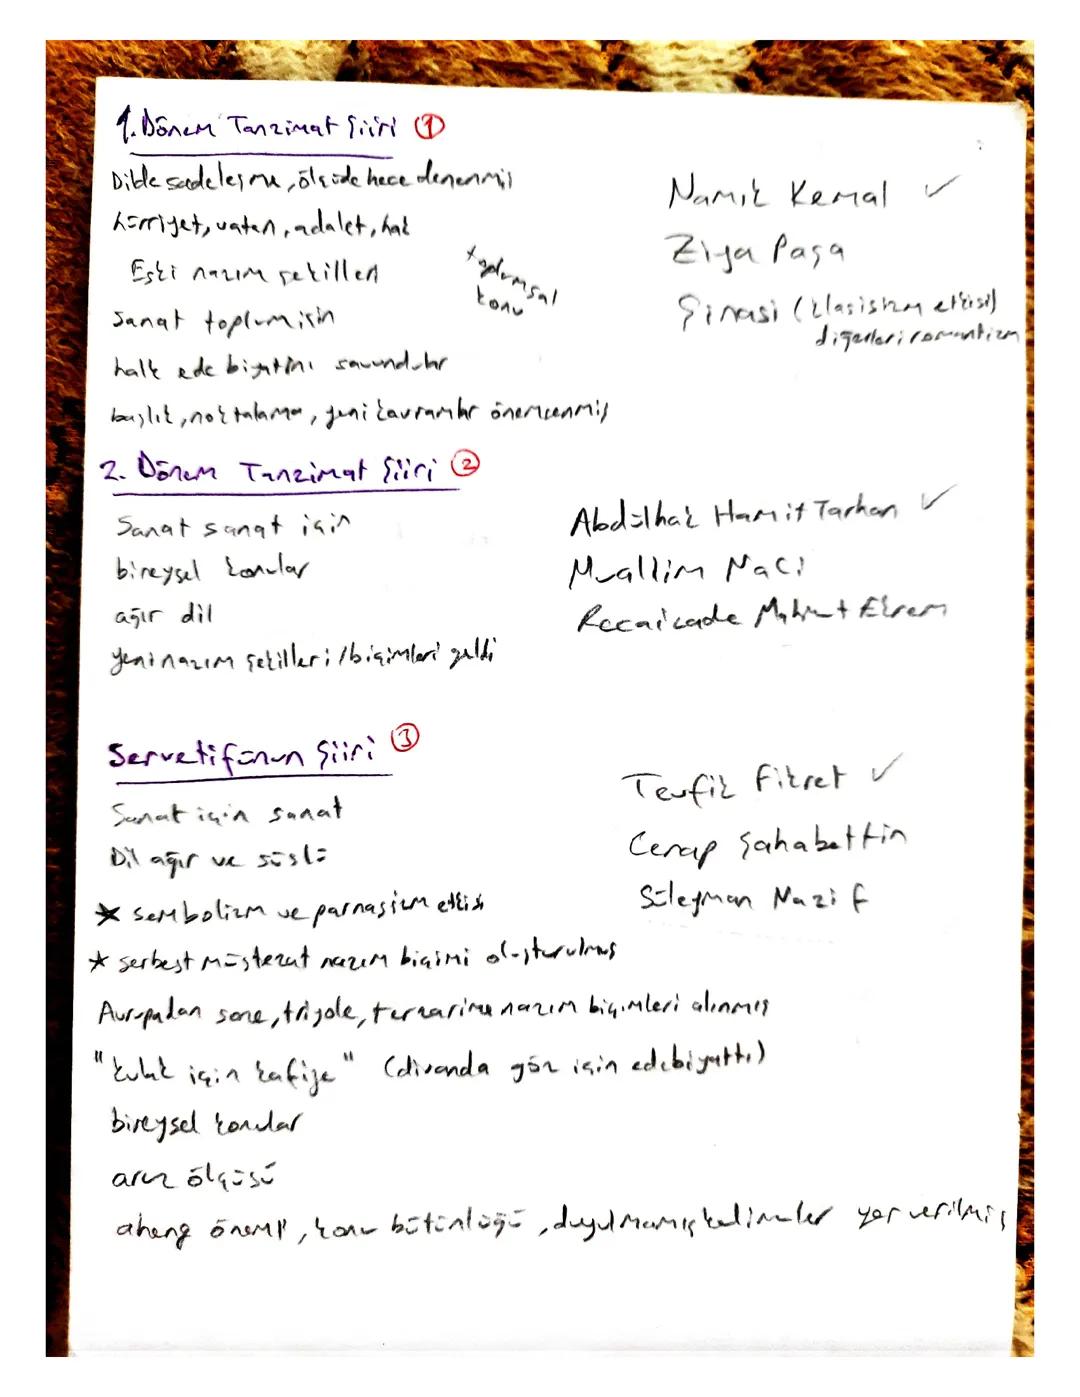 1. Dönem Tanzimat Şiiri ①
Dilde sadeleşme, ölçüde hece denenmiş
hürriyet, vatan, adalet, hak
Eski nazım şekilleri
toplumsal
konu
Sanat toplum için
halk edebiyatını savundular
başlık, noktalama, yeni kavramlar önemsenmiş
Namık Kemal ✓
Ziya Paşa
Şinasi (klasisizm etkisi)
diğerleri romantizm
2. Dönem Tanzimat Şiiri ②
Sanat sanat için
bireysel konular
ağır dil
yeni nazım şekilleri/biçimleri geldi
Abdülhak Hamit Tarhan ✓
Muallim Naci
Recaizade Mahmut Ekrem
Servetifünun Şiiri ③
Sanat için sanat
Dil ağır ve süslü
* sembolizm ve parnasizm etkisi
* serbest müstezat nazım biçimi oluşturulmuş
Avrupadan sone, triyole, terzarima nazım biçimleri alınmış
"kulak için kafiye" (divanda göz için edebiyattı)
bireysel konular
aruz ölçüsü
aheng önemli, konu bütünlüğü, duyulmamış kelimeler yer verilmiş
Tevfik Fikret ✓
Cenap Şahabettin
Süleyman Nazif